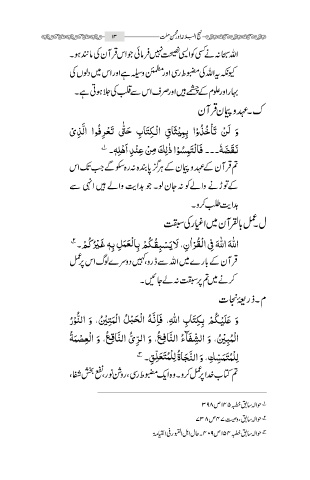 ۱۳
اللہ سبحانہ نے کسی کو ایسی نصیحت نہیں فرمائی جو اس قرآن کی مانند ہو۔
کیونکہ یہ اللہ کی مضبوط رسی اور مطمئن وسیلہ ہے اور اس میں دلوں کی
بہار اور علوم کے چشمے ہیں اور صرف اس سے قلب کی جلا ہوتی ہے۔
ک۔ عہد و پیمان قرآن
وَ لَنْ تَأْخُذُوْا بِمِيْثَاقِ الْكِتَابِ حَتّٰى تَعْرِفُوا الَّذِيْ
نَقَضَهٗ۔۔۔ فَالْتَمِسُوْا ذٰلِكَ مِنْ عِنْدِ اَهْلِهٖ۔ ۱
تم قرآن کے عہد و پیمان کے ہرگز پابند نہ رہ سکو گے جب تک اس
کے توڑنے والے کو نہ جان لو۔ جو ہدایت والے ہیں انہی سے
ہدایت طلب کرو۔
ل۔ عمل بالقرآن میں اغیار کی سبقت
اَللهَ اَللهَ فِي الْقُرْاٰنِ، لَا يَسْبِقُكُمْ بِالْعَمَلِ بِهٖ غَيْرُكُمْ۔ ۲
قرآن کے بارے میں اللہ سے ڈرو، کہیں دوسرے لوگ اس پر عمل
کرنے میں تم پر سبقت نہ لے جائیں۔
م۔ ذریعۂ نجات
وَ عَلَيْكُمْ بِكِتَابِ اللهِ، فَاِنَّهُ الْحَبْلُ الْمَتِيْنُ، وَ النُّوْرُ
الْمُبِيْنُ، وَ الشِّفَآءُ النَّافِعُ، وَ الرِّيُّ النَّاقِعُ، وَ الْعِصْمَةُ
لِلْمُتَمَسِّكِ، وَ النَّجَاةُ لِلْمُتَعَلِّقِ۔ ۳
تم کتاب خدا پر عمل کرو۔ وہ ایک مضبوط رسی، روشن نور، نفع بخش شفا،
۱۔ حوالہ سابق خطبہ ۱۴۵ ص ۳۹۸
۲۔ حوالہ سابق، وصیت ۴۷ ص ۷۳۸
۳۔ حوالہ سابق خطبہ ۱۵۴ ص ۴۰۹۔ حال اہل القبور فی القیامۃ